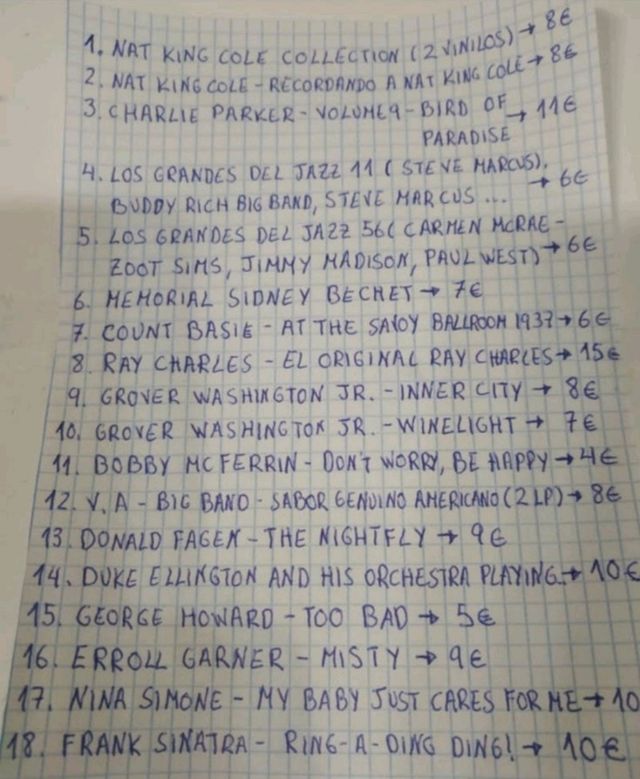 1. NAT KING COLE COLLECTION (2 VINILOS) → 8€
2. NAT KING COLE - RECORDANDO A NAT KING COLE → 8€
3. CHARLIE PARKER - VOLUME 9 - BIRD OF → 11€
PARADISE
4. LOS GRANDES DEL JAZZ 11 (STEVE MARCUS),
BUDDY RICH BIG BAND, STEVE MARCUS ... → 6€
5. LOS GRANDES DEL JAZZ 56 (CARMEN MCRAE -
ZOOT SIMS, JIMMY MADISON, PAUL WEST) → 6€
6. MEMORIAL SIDNEY BECHET → 7€
7. COUNT BASIE - AT THE SAVOY BALLROOM 1937 → 6€
8. RAY CHARLES - EL ORIGINAL RAY CHARLES → 15€
9. GROVER WASHINGTON JR. - INNER CITY → 8€
10. GROVER WASHINGTON JR. - WINELIGHT → 7€
11. BOBBY MC FERRIN - DON'T WORRY, BE HAPPY → 4€
12. V. A - BIG BAND - SABOR GENUINO AMERICANO (2 LP) → 8€
13. DONALD FAGEN - THE NIGHTFLY → 9€
14. DUKE ELLINGTON AND HIS ORCHESTRA PLAYING... → 10€
15. GEORGE HOWARD - TOO BAD → 5€
16. ERROLL GARNER - MISTY → 9€
17. NINA SIMONE - MY BABY JUST CARES FOR ME → 10
18. FRANK SINATRA - RING-A-DING DING! → 10€